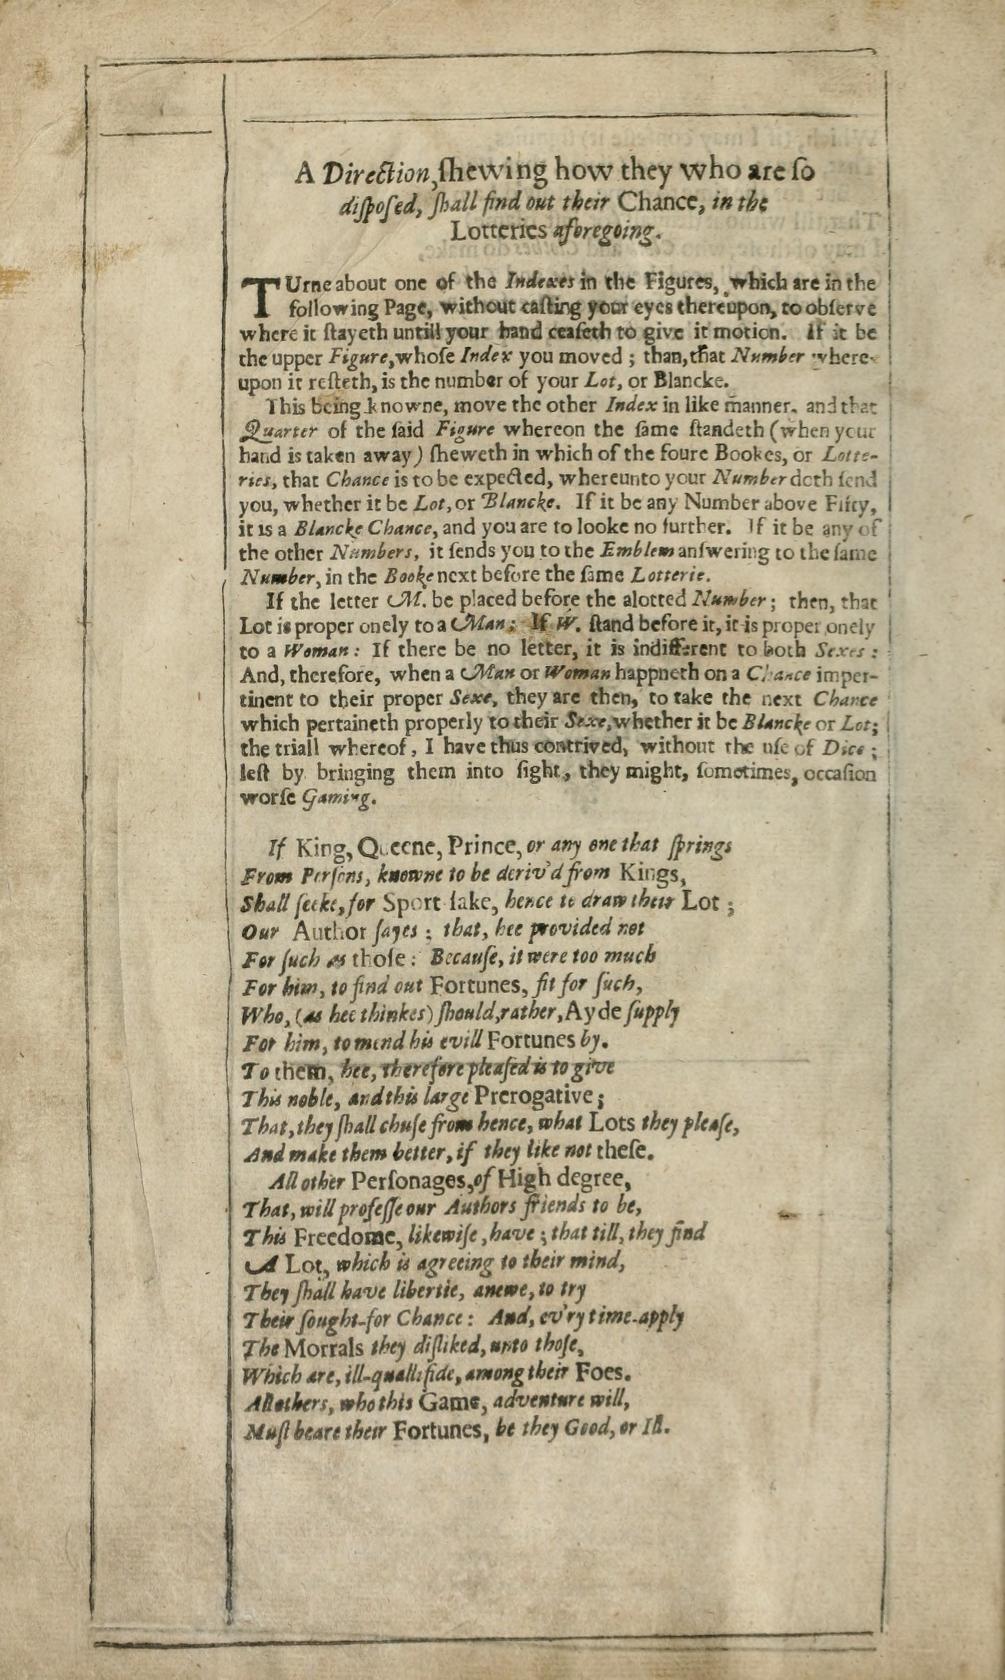 A Direction, ſhewing how they who are ſo
diſpoſed, ſhall find out their Chance, in the
Lotteries aforegoing.
TUrne about one of the Indexes in the Figures, which are in the
following Page, without caſting your eyes thereupon, to obſerve
where it ſtayeth untill your hand ceaſeth to give it motion. If it be
the upper Figure, whoſe Index you moved; than, that Number where-
upon it reſteth, is the number of your Lot, or Blancke.
This being knowne, move the other Index in like manner, and that
Quarter of the ſaid Figure whereon the ſame ſtandeth (when your
hand is taken away) ſheweth in which of the foure Bookes, or Lotte-
ries, that Chance is to be expected, whereunto your Number doth ſend
you, whether it be Lot, or Blancke. If it be any Number above Fifty,
it is a Blancke Chance, and you are to looke no further. If it be any of
the other Numbers, it ſends you to the Emblem anſwering to the ſame
Number, in the Booke next before the ſame Lotterie.
If the letter M. be placed before the alotted Number; then, that
Lot is proper onely to a Man; If W. ſtand before it, it is proper onely
to a Woman: If there be no letter, it is indifferent to both Sexes:
And, therefore, when a Man or Woman happneth on a Chance imper-
tinent to their proper Sexe, they are then, to take the next Chance
which pertaineth properly to their Sexe, whether it be Blancke or Lot;
the triall whereof, I have thus contrived, without the uſe of Dice;
leſt by bringing them into ſight, they might, ſometimes, occaſion
worſe Gaming.
If King, Queene, Prince, or any one that ſprings
From Perſons, knowne to be deriv'd from Kings,
Shall ſeeke, for Sport ſake, hence to draw their Lot;
Our Author ſayes; that, hee provided not
For ſuch as thoſe: Becauſe, it were too much
For him, to find out Fortunes, fit for ſuch,
Who, (as hee thinkes) ſhould, rather, Ayde ſupply
For him, to mend his evill Fortunes by.
To them, hee, therefore pleaſed is to give
This noble, and this large Prerogative;
That, they ſhall chuſe from hence, what Lots they pleaſe,
And make them better, if they like not theſe.
All other Perſonages, of High degree,
That, will profeſſe our Authors friends to be,
This Freedome, likewiſe, have; that till, they find
A Lot, which is agreeing to their mind,
They ſhall have libertie, anewe, to try
Their ſought-for Chance: And, ev'ry time apply
The Morrals they diſliked, unto thoſe,
Which are, ill-quallifide, among their Foes.
All others, who this Game, adventure will,
Muſt beare their Fortunes, be they Good, or Ill.